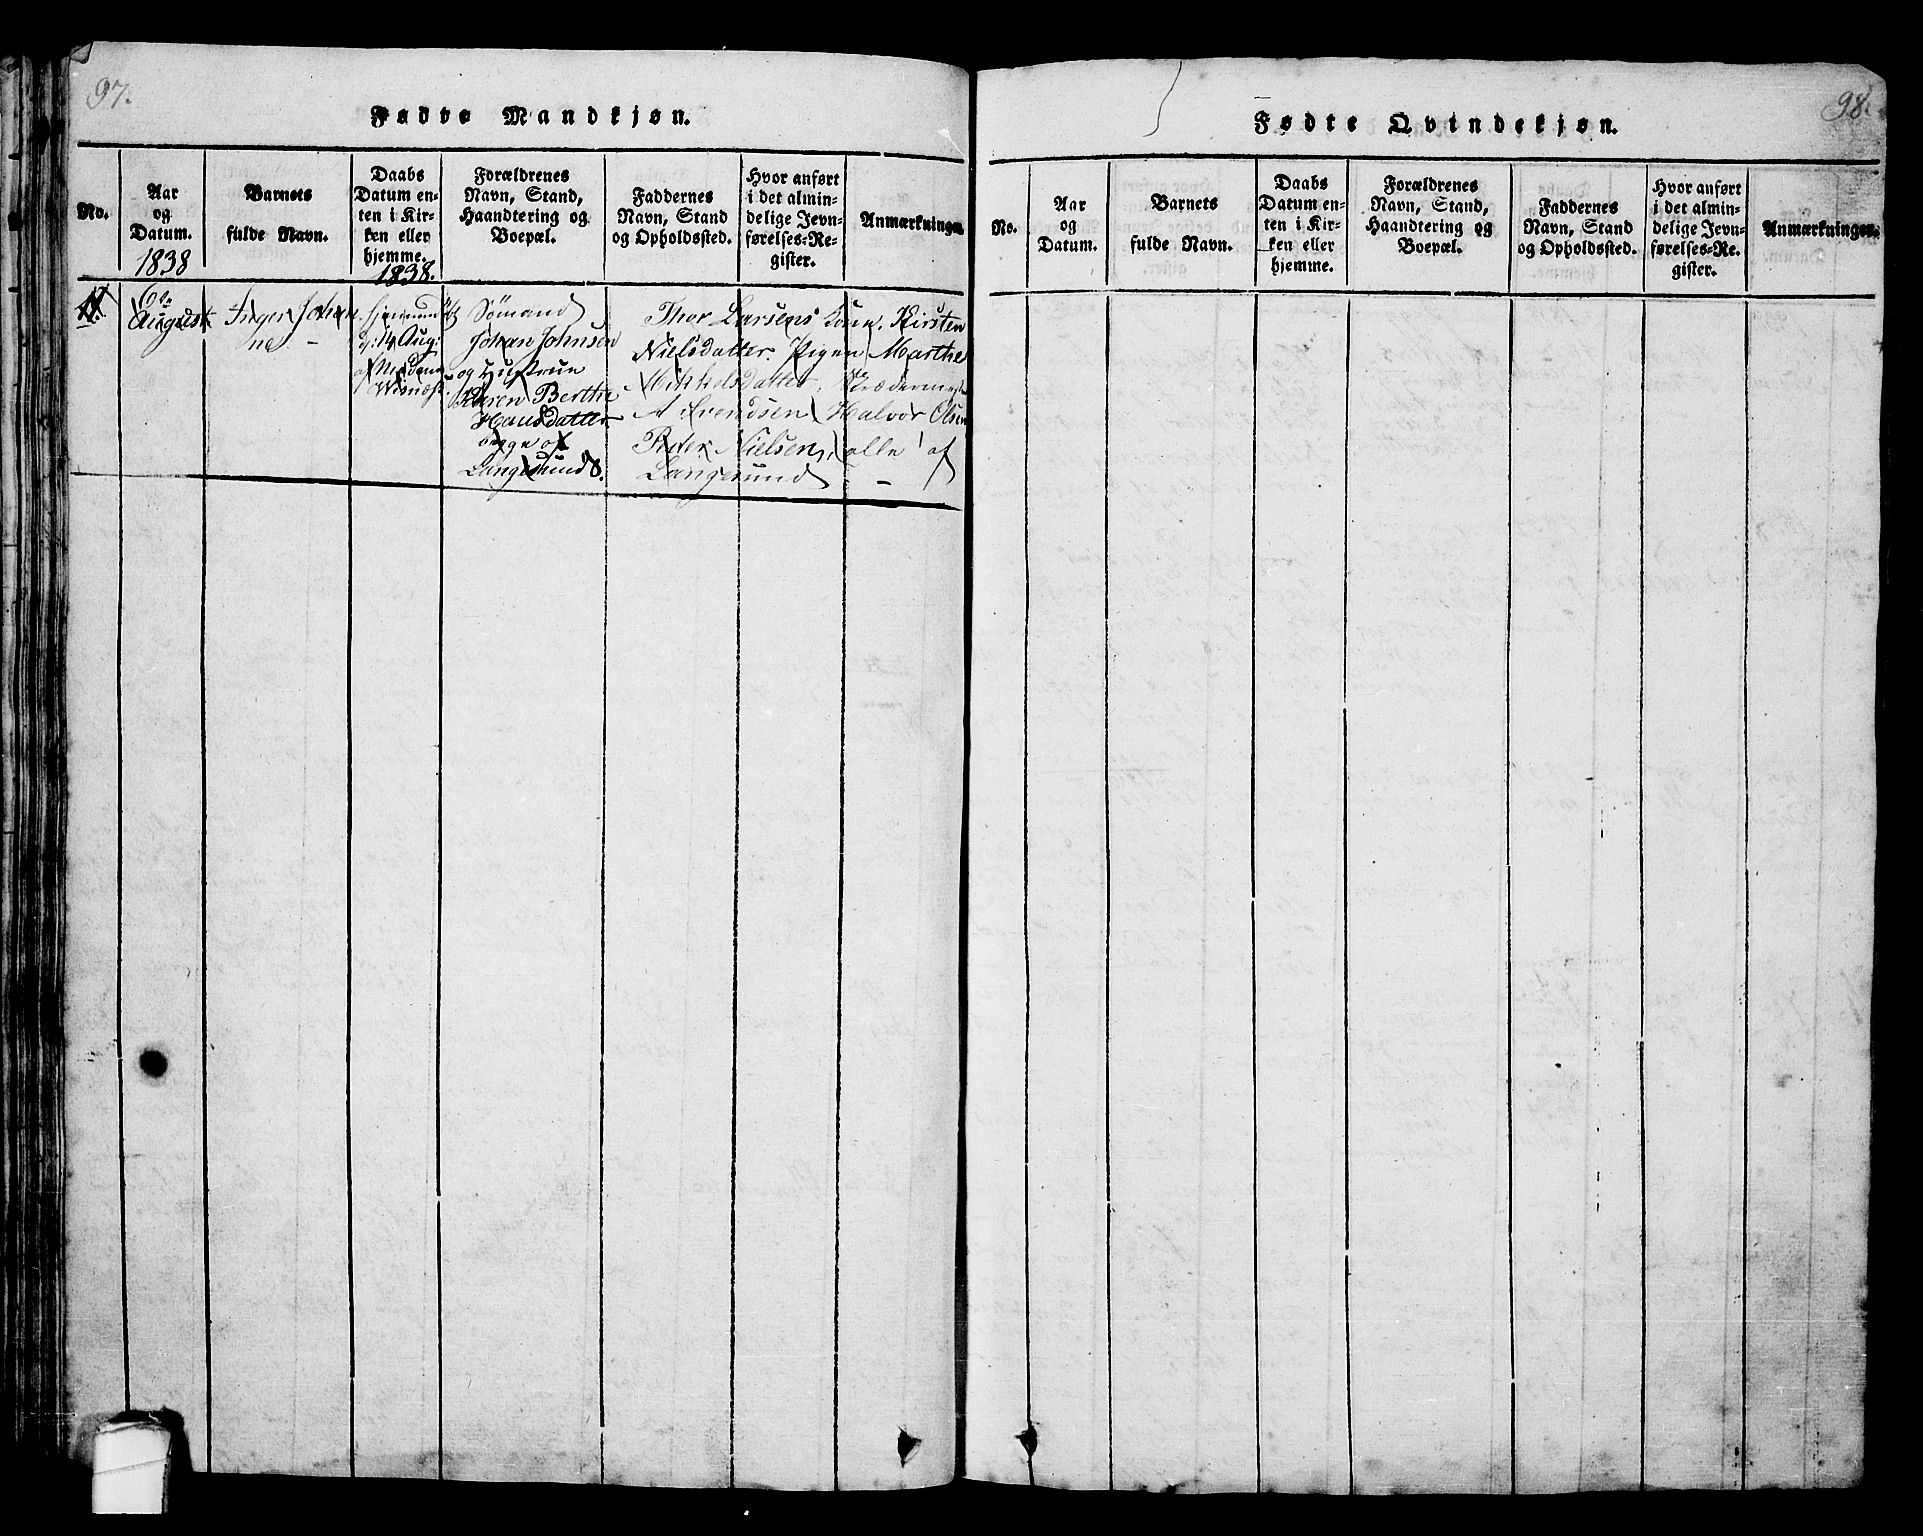 97.
Fødte Mandkjøn.
No.
Aar
og
Datum.
1838
Barnets
fulde Navn.
Daabs
Datum en-
ten i Kir-
ken eller
hjemme.
1838.
Forældrenes
Navn, Stand,
Haandtering og
Boepæl.
Faddernes
Navn, Stand
og Opholdssted.
Hvor anført
i det almin-
delige Jevn-
førelses-Re-
gister.
Anmærkninger.
6te
August
Inger Johan
ne -
14 Aug:
af
Sömand
Johan Johnsen
og Hustrue
Karen Berthe
Hansdatter
begge af
Langesund.
Thor Larsens Kone, Kirsten
Nielsdatter. Pigen Marthe
Mikkelsdatter.
A. Svendsen Halvor Olsen
Peder Nielsen, alle af
Langesund -
98.
Fødte Qvindekjøn.
No.
Aar
og
Datum.
Barnets
fulde Navn.
Daabs
Datum en-
ten i Kir-
ken eller
hjemme.
Forældrenes
Navn, Stand,
Haandtering og
Boepæl.
Faddernes
Navn, Stand
og Opholdssted.
Hvor anført
i det almin-
delige Jevn-
førelses-Re-
gister.
Anmærkninger.